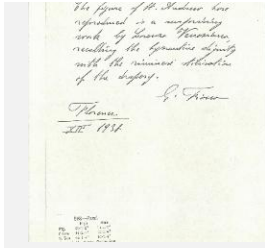 The figure of St. Andrew here
reproduced is a surprising
work by Lorenzo Veneziano,
recalling the byzantine dignity
with the
of the drapery.
G. Fiocco
Florence
XII 1936